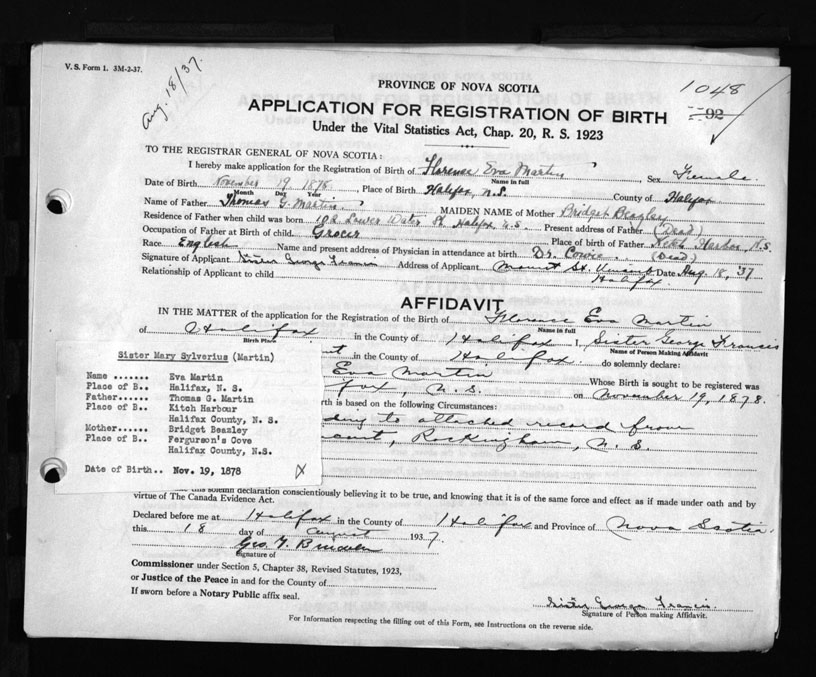 V. S. Form 1. 3M-2-37.
Aug. 18/37.
PROVINCE OF NOVA SCOTIA
1048
92
APPLICATION FOR REGISTRATION OF BIRTH
Under the Vital Statistics Act, Chap. 20, R. S. 1923
TO THE REGISTRAR GENERAL OF NOVA SCOTIA:
I hereby make application for the Registration of Birth of Florence Eva Martin Sex Female
Name in full
Date of Birth November 19 1878, Place of Birth Halifax, N.S. County of Halifax
Month Day Year
Name of Father Thomas G. Martin MAIDEN NAME of Mother Bridget Beazley
Residence of Father when child was born 182 Lower Water St. Halifax, N.S. Present address of Father (Dead)
Occupation of Father at Birth of child. Grocer Place of Birth of Father Ketch Harbor, N.S.
Race English Name and present address of Physician in attendance at birth Dr. Cowie (Dead)
Signature of Applicant Sister George Francis Address of Applicant Mount St. Vincent Date Aug. 18, '37
Relationship of Applicant to child Halifax.
AFFIDAVIT
IN THE MATTER of the application for the Registration of the Birth of Florence Eva Martin
Name in full
of Halifax in the County of Halifax I, Sister George Francis
Birth Place Name of Person Making Affidavit
in the County of Halifax do solemnly declare:
Eva Martin
fax, N.S. Whose Birth is sought to be registered was
on November 19, 1878.
rth is based on the following Circumstances:
ding to attached record from
ount, Rockingham, N.S.
Sister Mary Sylverius (Martin)
Name ....... Eva Martin
Place of B.. Halifax, N. S.
Father...... Thomas G. Martin
Place of B.. Kitch Harbour
Halifax County, N. S.
Mother...... Bridget Beazley
Place of B.. Fergurson's Cove
Halifax County, N.S.
Date of Birth.. Nov. 19, 1878
this solemn declaration conscientiously believing it to be true, and knowing that it is of the same force and effect as if made under oath and by
virtue of The Canada Evidence Act.
Declared before me at Halifax in the County of Halifax and Province of Nova Scotia
this 18 day of August 1937.
Geo.
Signature of
Commissioner under Section 5, Chapter 38, Revised Statutes, 1923,
or Justice of the Peace in and for the County of
If sworn before a Notary Public affix seal.
Sister George Francis.
Signature of Person making Affidavit.
For Information respecting the filling out of this Form, see Instructions on the reverse side.